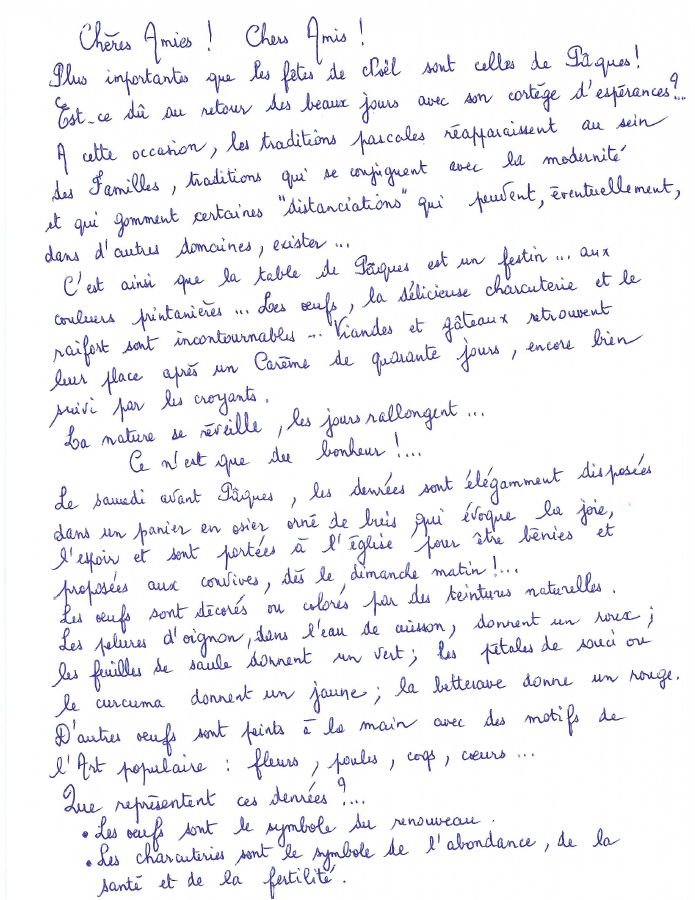 Chères Amies ! Chers Amis !
Plus importantes que les fêtes de Noël sont celles de Pâques !
Est-ce dû au retour des beaux jours avec son cortège d'espérances ?...
A cette occasion, les traditions pascales réapparaissent au sein
des Familles, traditions qui se conjuguent avec la modernité
et qui gomment certaines "distanciations" qui peuvent, éventuellement,
dans d'autres domaines, exister ...
C'est ainsi que la table de Pâques est un festin ... aux
couleurs printanières ... Les oeufs, la délicieuse charcuterie et le
raifort sont incontournables ... Viandes et gâteaux retrouvent
leur place après un Carême de quarante jours, encore bien
suivi par les croyants.
La nature se réveille, les jours rallongent ...
Ce n'est que du bonheur !...
Le samedi avant Pâques, les denrées sont élégamment disposées
dans un panier en osier orné de buis qui évoque la joie,
l'espoir et sont portées à l'église pour être bénies et
proposées aux convives, dès le dimanche matin !...
Les oeufs sont décorés ou colorés par des teintures naturelles.
Les pelures d'oignon, dans l'eau de cuisson, donnent un roux ;
les feuilles de saule donnent un vert ; les pétales de souci ou
le curcuma donnent un jaune ; la betterave donne un rouge.
D'autres oeufs sont peints à la main avec des motifs de
l'Art populaire : fleurs, poules, coqs, coeurs ...
Que représentent ces denrées ?...
• Les oeufs sont le symbole du renouveau.
• Les charcuteries sont le symbole de l'abondance, de la
santé et de la fertilité.